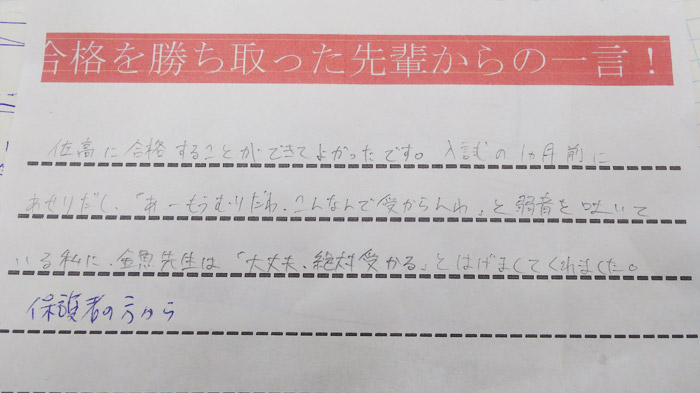 合格を勝ち取った先輩からの一言！
佐高に合格することができてよかったです。入試の1ヵ月前に
あせりだし、「あーもうむりだわ、こんなんで受からんわ」と弱音を吐いて
いる私に、金魚先生は「大丈夫、絶対受かる」とはげましてくれました。
保護者の方から